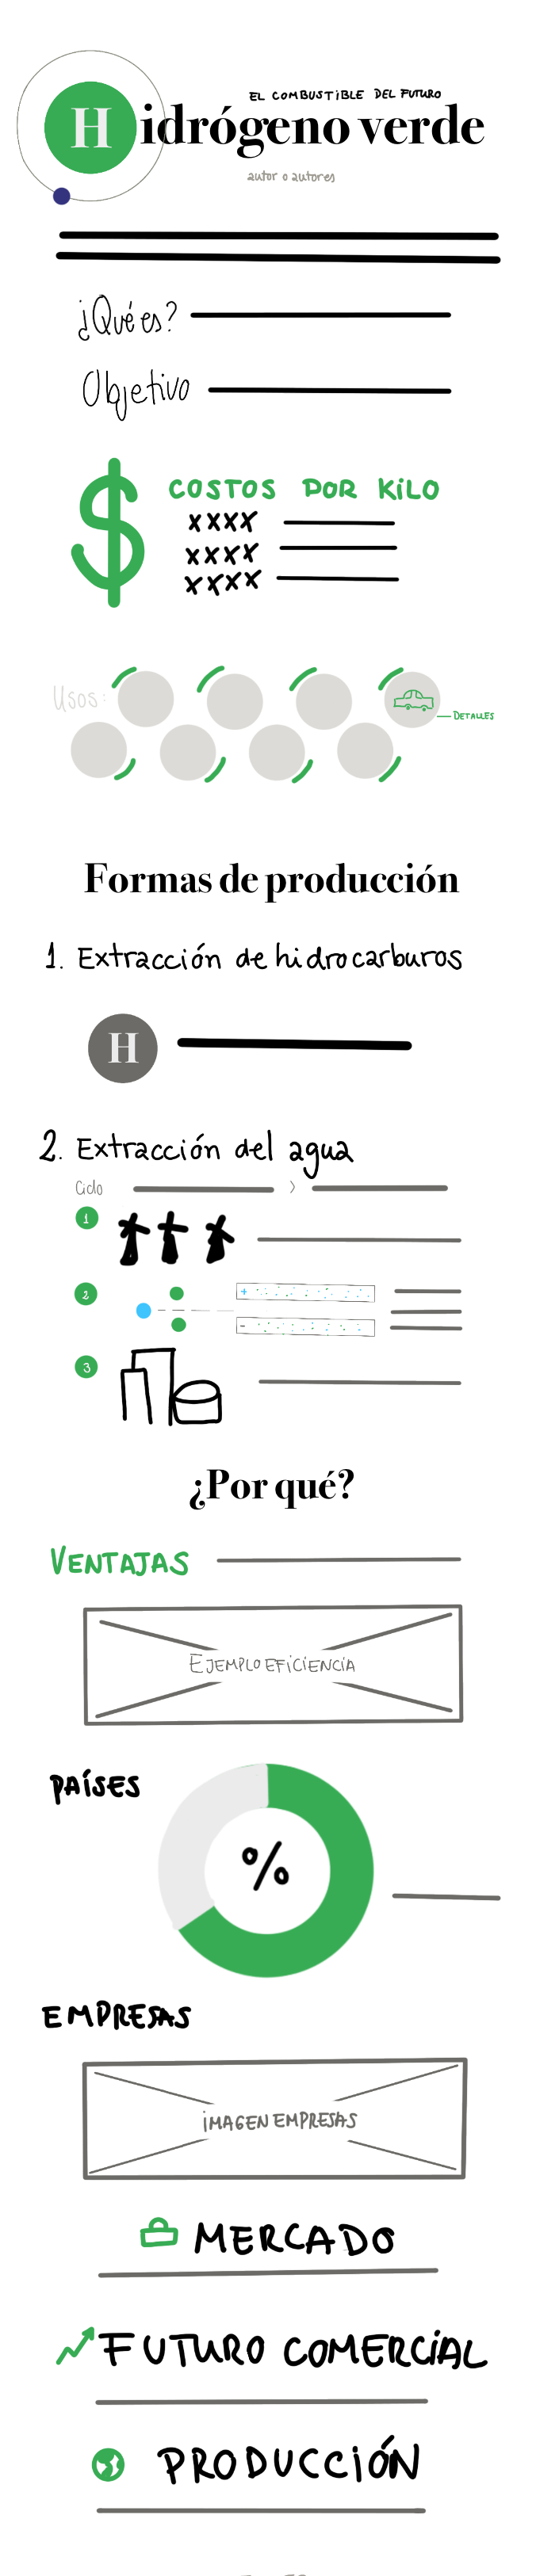 EL COMBUSTIBLE DEL FUTURO
Hidrógeno verde
autor o autores
¿Qué es?
Objetivo
$
COSTOS POR KILO
XXXX
XXXX
XXXX
Usos:
DETALLES
Formas de producción
1. Extracción de hidrocarburos
H
2. Extracción del agua
Ciclo >
1
2
+
-
3
¿Por qué?
VENTAJAS
EJEMPLO EFICIENCIA
PAÍSES
%
EMPRESAS
IMAGEN EMPRESAS
MERCADO
FUTURO COMERCIAL
PRODUCCIÓN